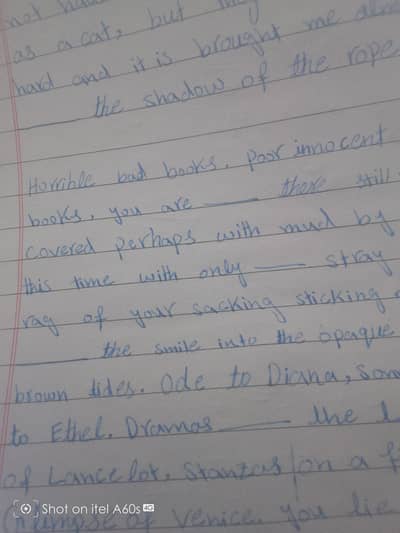 not
as a cat, but
hard and it is brought me
____ the shadow of the rope
Horrible bad books. Poor innocent
books, you are ____ there still
covered perhaps with mud by
this time with only ____ stray
rag of your sacking sticking
____ the smile into the opaque
brown tides. Ode to Diana, Son
to Ethel. Dramas ____ the L
of Lancelot. Stanzas on a f
Glimpse of Venice. you lie
Shot on itel A60s 4G